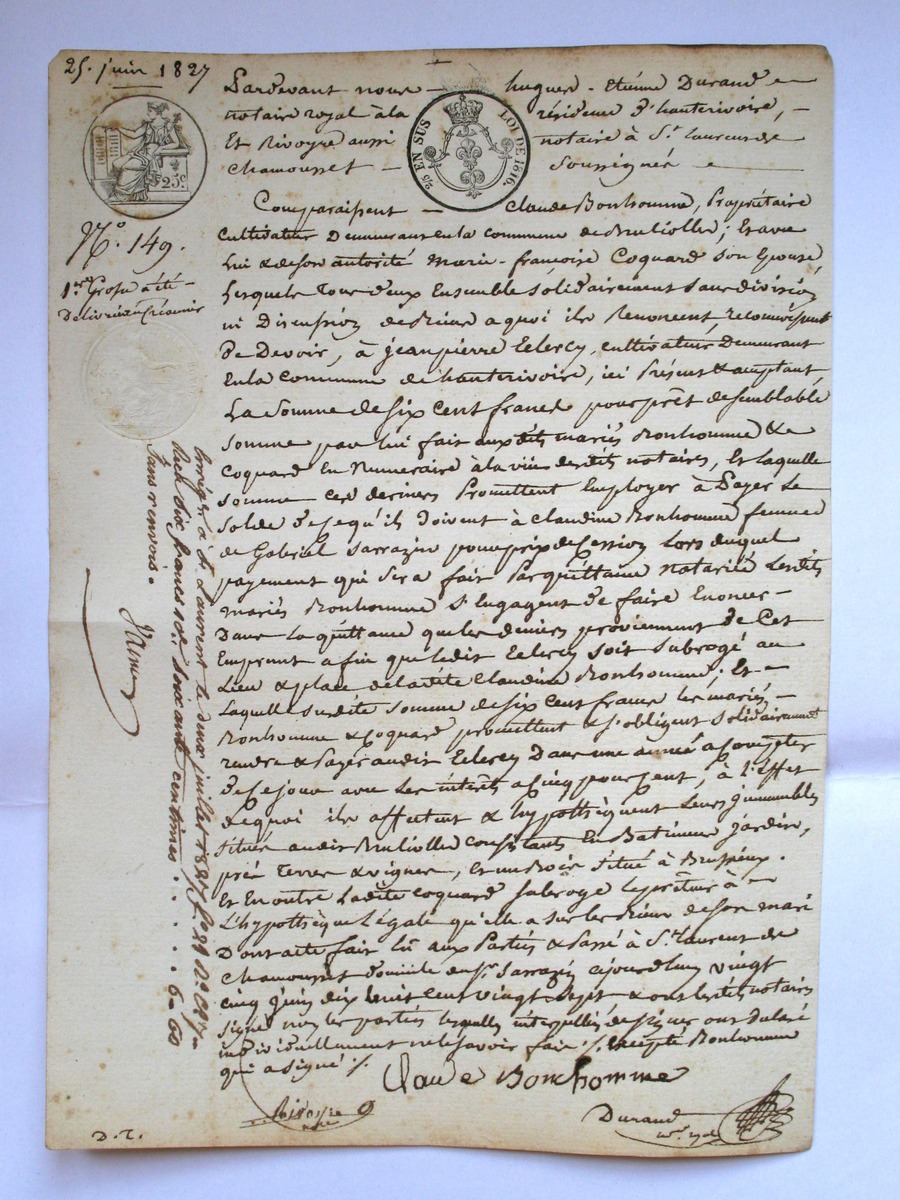 25. juin 1827
Pardevant nous hugues - Etiénne Durand
notaire royal à la résidence d'hauterivoire,
Et Rivoyre aussi notaire à St. Laurent de
Chamousset Soussignés
2/5 EN SUS LOI DE 1816.
25c
N°. 149.
1ere Grosse a été
Délivrée au Créancier
Comparaissent Claude Bonhomme, Propriétaire
cultivateur Demeurant en la commune de Brulliolles; Et avec
Lui & de son autorité Marie-françoise Coquard son Epouse,
Lesquels Tous deux Ensemble solidairement sans division
ni Discussion de Biens a quoi ils Renoncent, reconnaissent
De Devoir, à jean pierre Leclercq, cultivateur Demeurant
En la commune de hauterivoire, ici Présent & acceptant,
La somme de six cent francs pour prêt de semblable
somme par lui fait aux dits mariés Bonhomme &
Coquard En Numeraire à la vüe desdits notaires, Et laquelle
somme ces derniers Promettent Employer à Payer Le
solde de ce qu'ils doivent à Claudine Bonhomme femme
de Gabriel Sarrazin pour prix de Cession Lors duquel
payement qui sera fait Par quittance notariée Lesdits
mariés Bonhomme s'Engagent de faire Enoncer
Dans La quittance que les deniers proviennent de Cet
Emprunt afin que ledit Leclercq soit subrogé au
Lieu & place de la dite Claudine Bonhomme; Et
Laquelle susdite somme de six Cent francs les mariés
Bonhomme & Coquard promettent & s'obligent solidairement
rendre & Payer audit Leclercq Dans une année a Compter
de ce jour avec Les intérêts a cinq pour cent, à l'Effet
de quoi ils affectent & hypothèquent Leurs jmmeubles
situés audit Brulliolles consistants En Batiments jardin,
prés Terres & vignes, Et un Bois situé à Brussieux.
Et En outre Ladite Coquard subroge le prêteur à
L'hypothèque Légale qu'elle a sur les Biens de son mari
Dont acte fait Lû aux Parties & Passé à St. Laurent de
Chamousset domicile du Sr. Sarrazin cejourd'huy vingt
cinq juin dix huit cent vingt sept & ont lesdits notaires
signé non les parties lesquelles interpellées de signer ont déclaré
individuellement ne le savoir faire /. Excepté Bonhomme
qui a signé /.
Claude Bonhomme
Rivoyre
Durand
D.T.
Enrégistré à St. Laurent le deux juillet 1827 f° 29
Reçu six francs soixante centimes . . . . 6-60
Sans renvois.